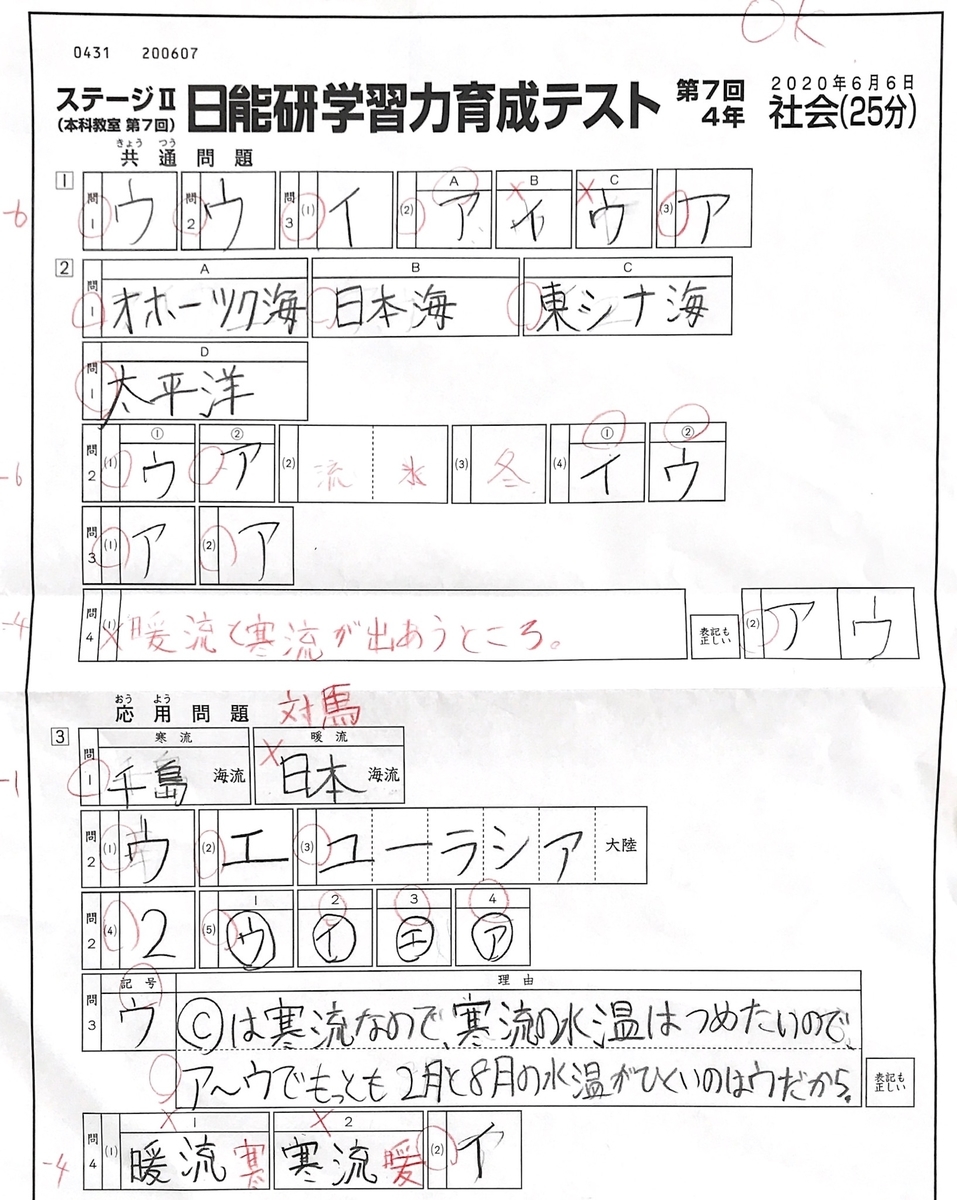 OK
0431 200607
ステージⅡ
(本科教室 第7回)
日能研学習力育成テスト
第7回
4年
2020年6月6日
社会(25分)
きょう つう
共通問題
1
-6
問1 ウ 問2 ウ 問3 (1) イ (2) A ア B イ C ウ (3) ア
2
A B C
問1 オホーツク海 日本海 東シナ海
D
問1 太平洋
① ② ① ②
-6 問2 (1) ウ ア (2) 流 氷 (3) 冬 (4) イ ウ
問3 (1) ア (2) ア
-4 問4 (1) 暖流と寒流が出あうところ。 表記も正しい (2) ア ウ
おう よう
応用問題 対馬
3
寒流 暖流
-1 問1 千島 海流 日本 海流
問2 (1) ウ (2) エ (3) ユーラシア 大陸
1 2 3 4
問2 (4) 2 (5) ウ イ エ ア
記号 理由
問3 ウ Ⓒは寒流なので、寒流の水温はつめたいので、
ア〜ウでもっとも2月と8月の水温がひくいのはウだから。 表記も正しい
1 2
-4 問4 (1) 暖流 寒 寒流 暖 (2) イ